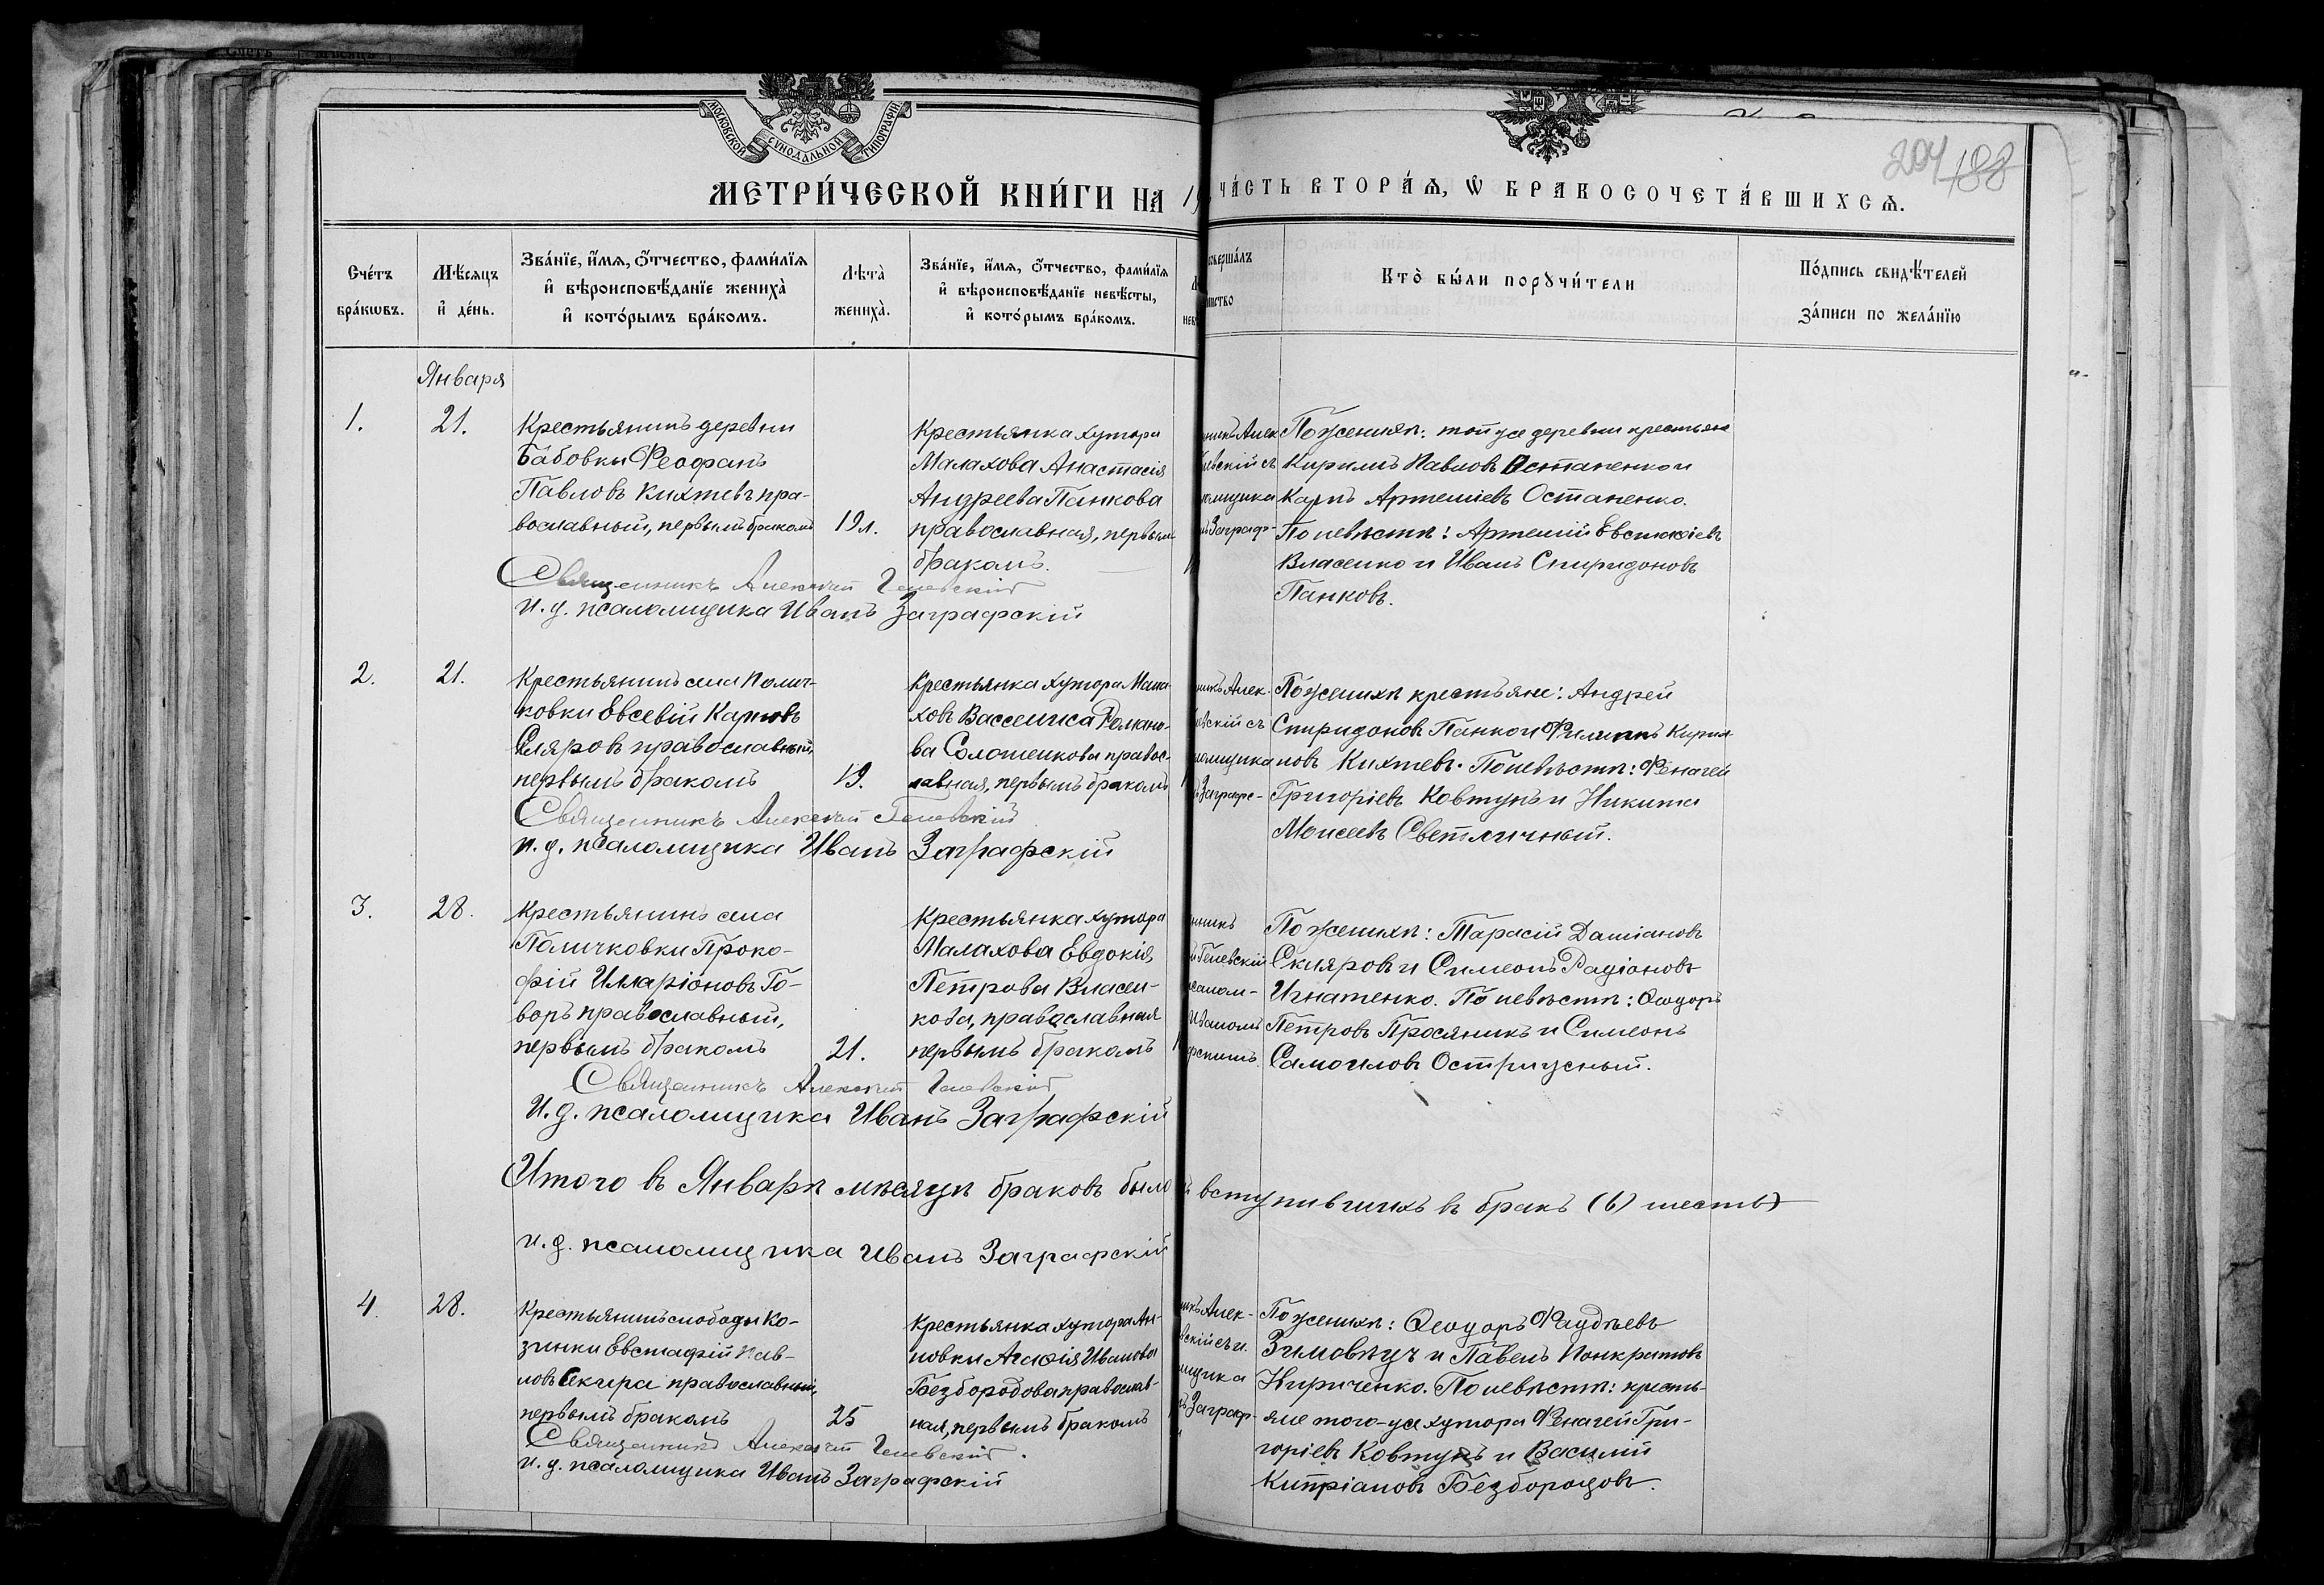 МОСКОВСКОЙ СѴНОДАЛЬНОЙ ТИПОГРАФІИ
МЕТРИ́ЧЕСКОЙ КНИ́ГИ НА 19
ЧА́СТЬ ВТОРА́Ѧ, Ѡ БРАКОСОЧЕТА́ВШИХСѦ.
204/188
Сче́тъ бра́кѡвъ.
Мѣ́сяцъ и҆ де́нь.
Зва́нїе, и҆́мѧ, ѻ҆́тчество, фами́лїѧ
и҆ вѣроисповѣ́данїе жениха̀
и҆ кото́рымъ бра́комъ.
Лѣта̀ жениха̀.
Зва́нїе, и҆́мѧ, ѻ҆́тчество, фами́лїѧ
и҆ вѣроисповѣ́данїе невѣ́сты,
и҆ кото́рымъ бра́комъ.
Кто̀ бы́ли порꙋчи́тели
По́дпись свидѣ́телей
за́писи по жела́нїю
Января
1.
21.
Крестьянинъ деревни
Бабовки Феофанъ
Павловъ Кихтевъ пра-
вославный, первымъ бракомъ
19 л.
Крестьянка хутора
Малахова Анастасія
Андреева Панкова
православная, первымъ
бракомъ.
никъ Алек
евскій съ
омщика
Заграф-
По женихѣ: той же деревни крестьяне
Кирилъ Павловъ Остапенко и
Карпъ Артемiевъ Остапенко.
По невѣстѣ: Артемій Евстиѳіевъ
Власенко и Иванъ Спиридоновъ
Панковъ.
Священникъ Алексій Гелевскій
и. д. псаломщика Иванъ Заграфскій
2.
21.
Крестьянинъ села Полич-
ковки Евсевій Карповъ
Скляровъ православный,
первымъ бракомъ
19.
Крестьянка хутора Мала-
ховъ Васселиса Романо-
ва Солошенкова правос-
лавная, первымъ бракомъ
никъ Алек-
евскій съ
омщика
Заграфс-
По женихѣ крестьяне: Андрей
Спиридоновъ Панко и Филиппъ Кирил-
новъ Кихтевъ. По невѣстѣ: Фенагей
Григоріевъ Ковтунъ и Никита
Моисеевъ Светличный.
Священникъ Алексій Гелевскій
и. д. псаломщика Иванъ Заграфскій
3.
28.
Крестьянинъ села
Поличковки Проко-
фій Илларіоновъ Го-
воръ православный,
первымъ бракомъ
21.
Крестьянка хутора
Малахова Евдокія
Петрова Власен-
кова, православная
первымъ бракомъ
никъ
Гелевскій
салом-
Иваномъ
фскимъ
По женихѣ: Тарасій Даміановъ
Скляровъ и Симеонъ Радіоновъ
Игнатенко. По невѣстѣ: Ѳеодоръ
Петровъ Просяникъ и Симеонъ
Самоиловъ Остриусный.
Священникъ Алексій Гелевскій
И. д. псаломщика Иванъ Заграфскій
Итого въ Январѣ мѣсяцѣ браковъ было
вступившихъ въ бракъ (6) шесть)
и. д. псаломщика Иванъ Заграфскій
4
28.
Крестьянинъ слободы Ко-
зинки Евстафій Пав-
ловъ Секира православный,
первымъ бракомъ
25
Крестьянка хутора Ан-
новки Агафія Иванова
Безбородова православ-
ная, первымъ бракомъ
никъ Алек-
вскій съ и.
мщика
Заграф-
По женихѣ: Ѳеодоръ Фаддѣевъ
Зимовецъ и Павелъ Понкратовъ
Кириченко. По невѣстѣ: кресть-
яне того-же хутора Фенагей Гри-
горіевъ Ковтунъ и Василій
Кипріановъ Безбородовъ.
Священникъ Алексій Гелевскій.
и. д. псаломщика Иванъ Заграфскій